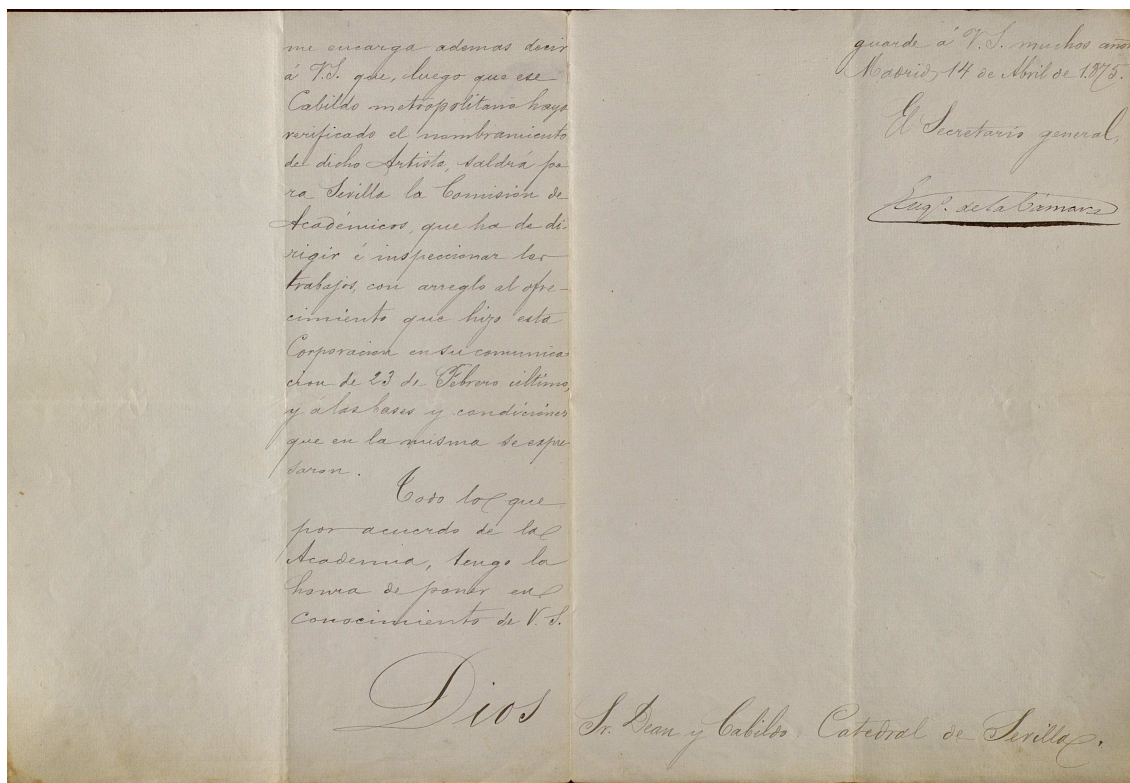 me encarga ademas decir
á V.S. que, luego que ese
Cabildo metropolitano haya
verificado el nombramiento
de dicho Artista, saldrá pa-
ra Sevilla la Comisión de
Académicos, que ha de di-
rigir é inspeccionar los
trabajos, con arreglo al ofre-
cimiento que hizo esta
Corporacion en su comunica-
cion de 23 de Febrero último,
y á las bases y condiciones
que en la misma se expre-
saron.
Todo lo que
por acuerdo de la
Academia, tengo la
honra de poner en
conocimiento de V.S.
Dios
guarde á V.S. muchos años
Madrid 14 de Abril de 1875.
El Secretario general,
Eug.º de la Cámara
Sr. Dean y Cabildo Catedral de Sevilla.